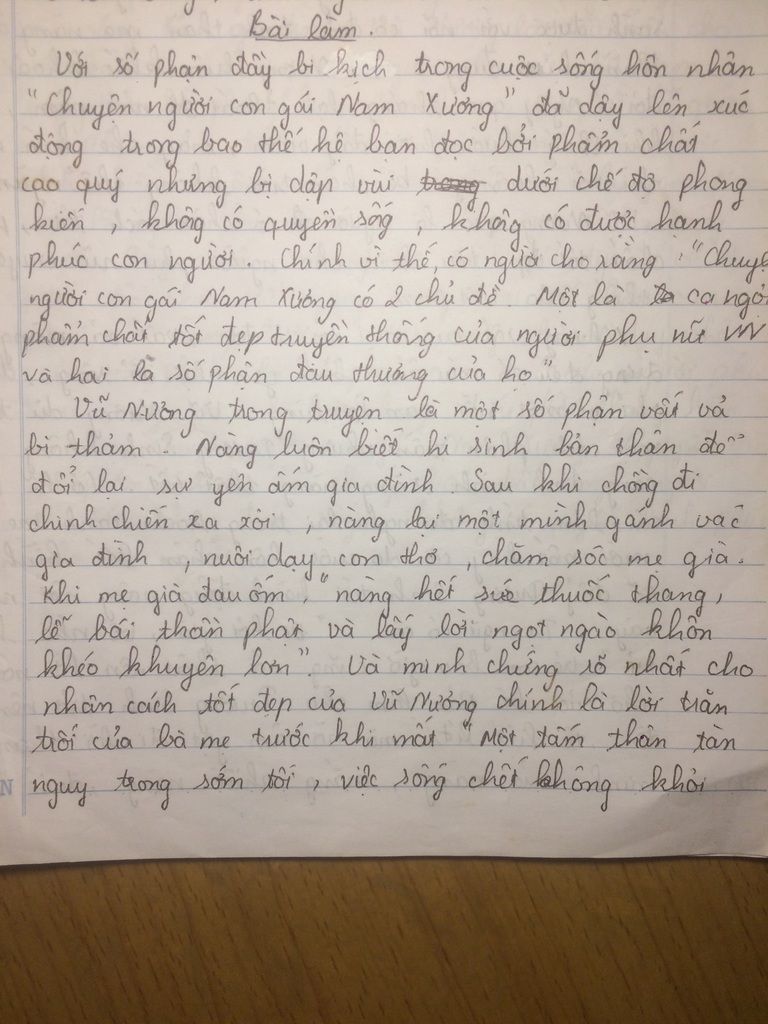 Bài làm.
Với số phận đầy bi kịch trong cuộc sống hôn nhân
"Chuyện người con gái Nam Xương" đã dậy lên xúc
động trong bao thế hệ bạn đọc bởi phẩm chất
cao quý nhưng bị dập vùi dưới chế độ phong
kiến, không có quyền sống, không có được hạnh
phúc con người. Chính vì thế, có người cho rằng: "Chuyệ
người con gái Nam Xương có 2 chủ đề. Một là ca ngợi
phẩm chất tốt đẹp truyền thống của người phụ nữ VN
và hai là số phận đau thương của họ"
Vũ Nương trong truyện là một số phận vất vả
bi thảm. Nàng luôn biết hi sinh bản thân để
đổi lại sự yên ấm gia đình. Sau khi chồng đi
chinh chiến xa xôi, nàng lại một mình gánh vác
gia đình, nuôi dạy con thơ, chăm sóc mẹ già.
Khi mẹ già đau ốm, "nàng hết sức thuốc thang,
lễ bái thần phật và lấy lời ngọt ngào khôn
khéo khuyên lơn". Và minh chứng rõ nhất cho
nhân cách tốt đẹp của Vũ Nương chính là lời trăn
trối của bà mẹ trước khi mất "Một tấm thân tàn
nguy trong sớm tối, việc sống chết không khỏi